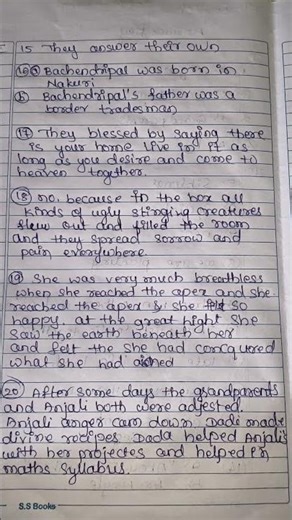 15 They answer their own
16 a Bachendripal was born in
Nakuri
b Bachendripal's father was a
border tradesman
17 They blessed by saying there
is your home live in it as
long as you desire and come to
heaven together.
18 no, because in the box all
kinds of ugly stinging creatures
flew out and filled the room
and they spread sorrow and
pain everywhere.
19 She was very much breathless
when she reached the aper and she
reached the aper & she felt so
happy. at the great hight she
saw the earth beneath her
and felt the she had conquered
what she had
20 After some days the grandparents
and Anjali both were adjested.
Anjali anger cam down. Dadi made
divine recipes Dada helped Anjali
with her projectes and helped in
maths syllabus.
S.S Books